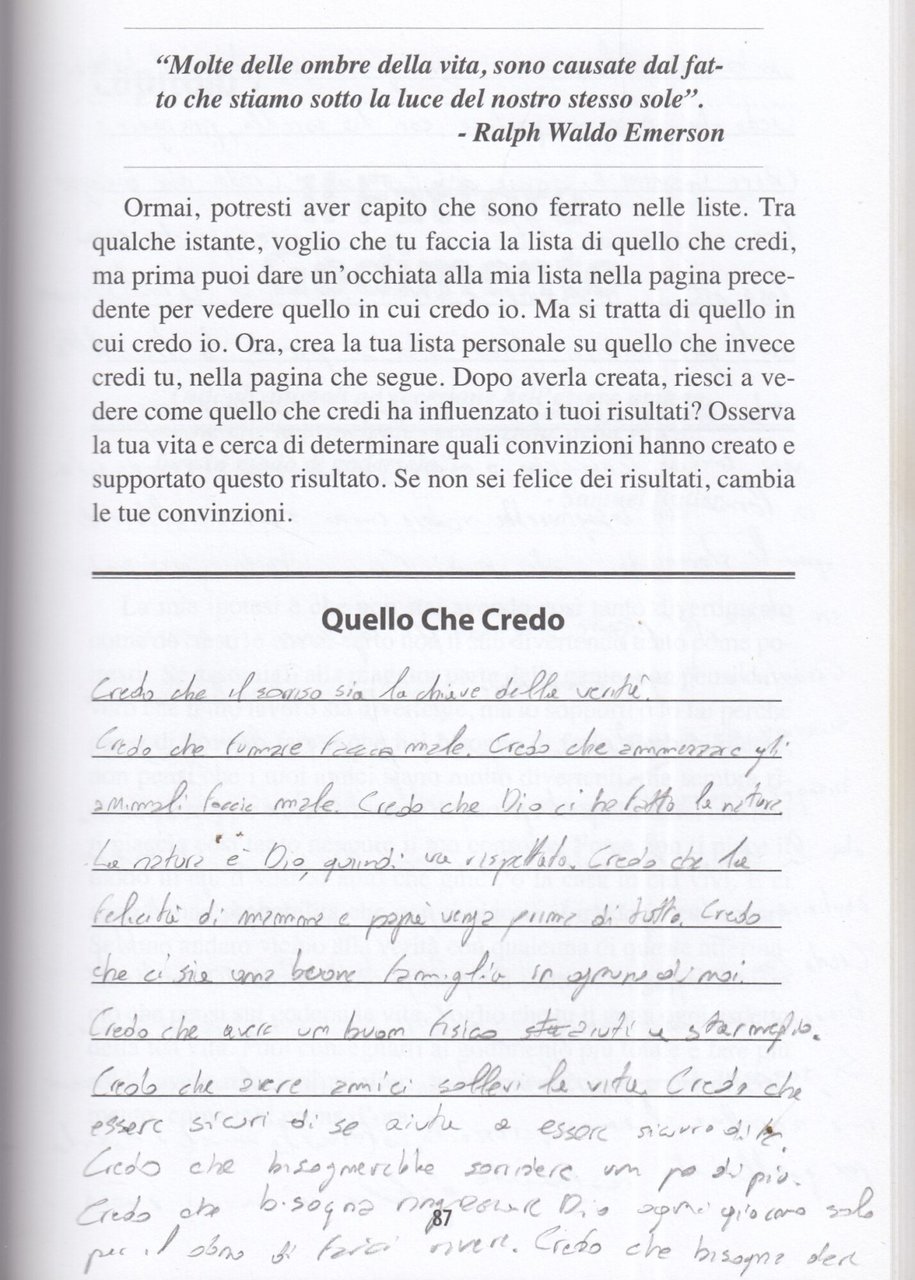 “Molte delle ombre della vita, sono causate dal fat-
to che stiamo sotto la luce del nostro stesso sole”.
- Ralph Waldo Emerson
Ormai, potresti aver capito che sono ferrato nelle liste. Tra
qualche istante, voglio che tu faccia la lista di quello che credi,
ma prima puoi dare un’occhiata alla mia lista nella pagina prece-
dente per vedere quello in cui credo io. Ma si tratta di quello in
cui credo io. Ora, crea la tua lista personale su quello che invece
credi tu, nella pagina che segue. Dopo averla creata, riesci a ve-
dere come quello che credi ha influenzato i tuoi risultati? Osserva
la tua vita e cerca di determinare quali convinzioni hanno creato e
supportato questo risultato. Se non sei felice dei risultati, cambia
le tue convinzioni.
Quello Che Credo
Credo che il sorriso sia la chiave della verità
Credo che fumare faccia male. Credo che ammazzare gli
animali faccia male. Credo che Dio ci ha fatto la natura
La natura è Dio, quindi va rispettata. Credo che la
felicità di mamma e papà venga prima di tutto. Credo
che ci sia una buona famiglia in ognuno di noi.
Credo che avere un buon fisico aiuti a star meglio.
Credo che avere amici sollevi la vita. Credo che
essere sicuri di se aiuta a essere sicuro di
Credo che bisognerebbe sorridere un po di più.
Credo che bisogna ringraziare Dio ogni giorno solo
87
per il dono di farci vivere. Credo che bisogna dare